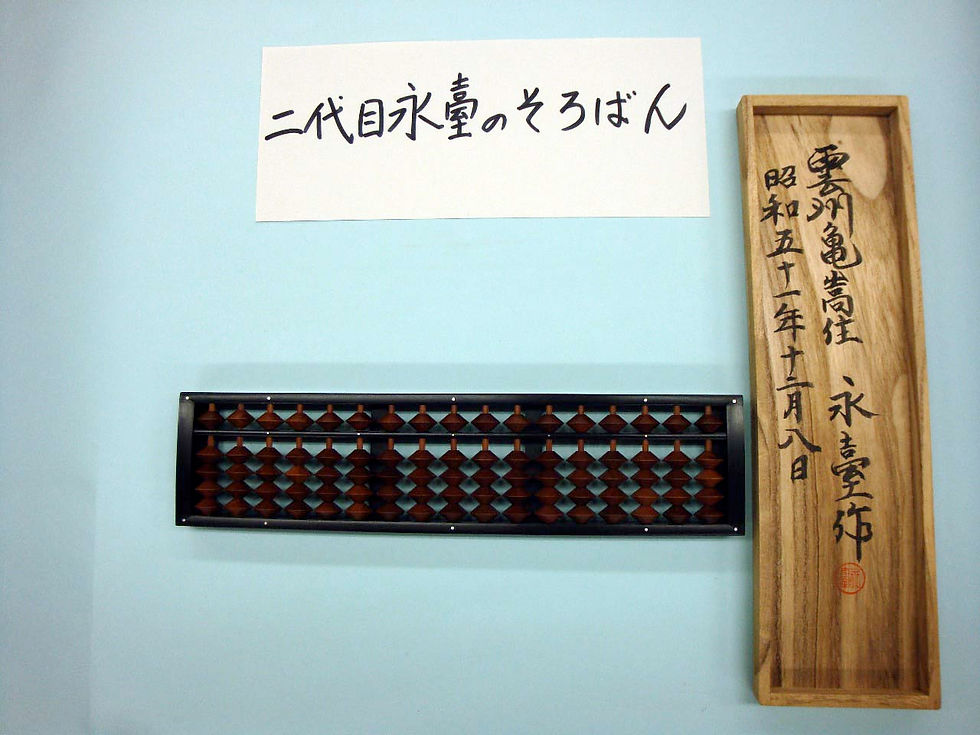 二代目永臺のそろばん
雲州亀嵩住 永臺作
昭和五十一年十二月八日